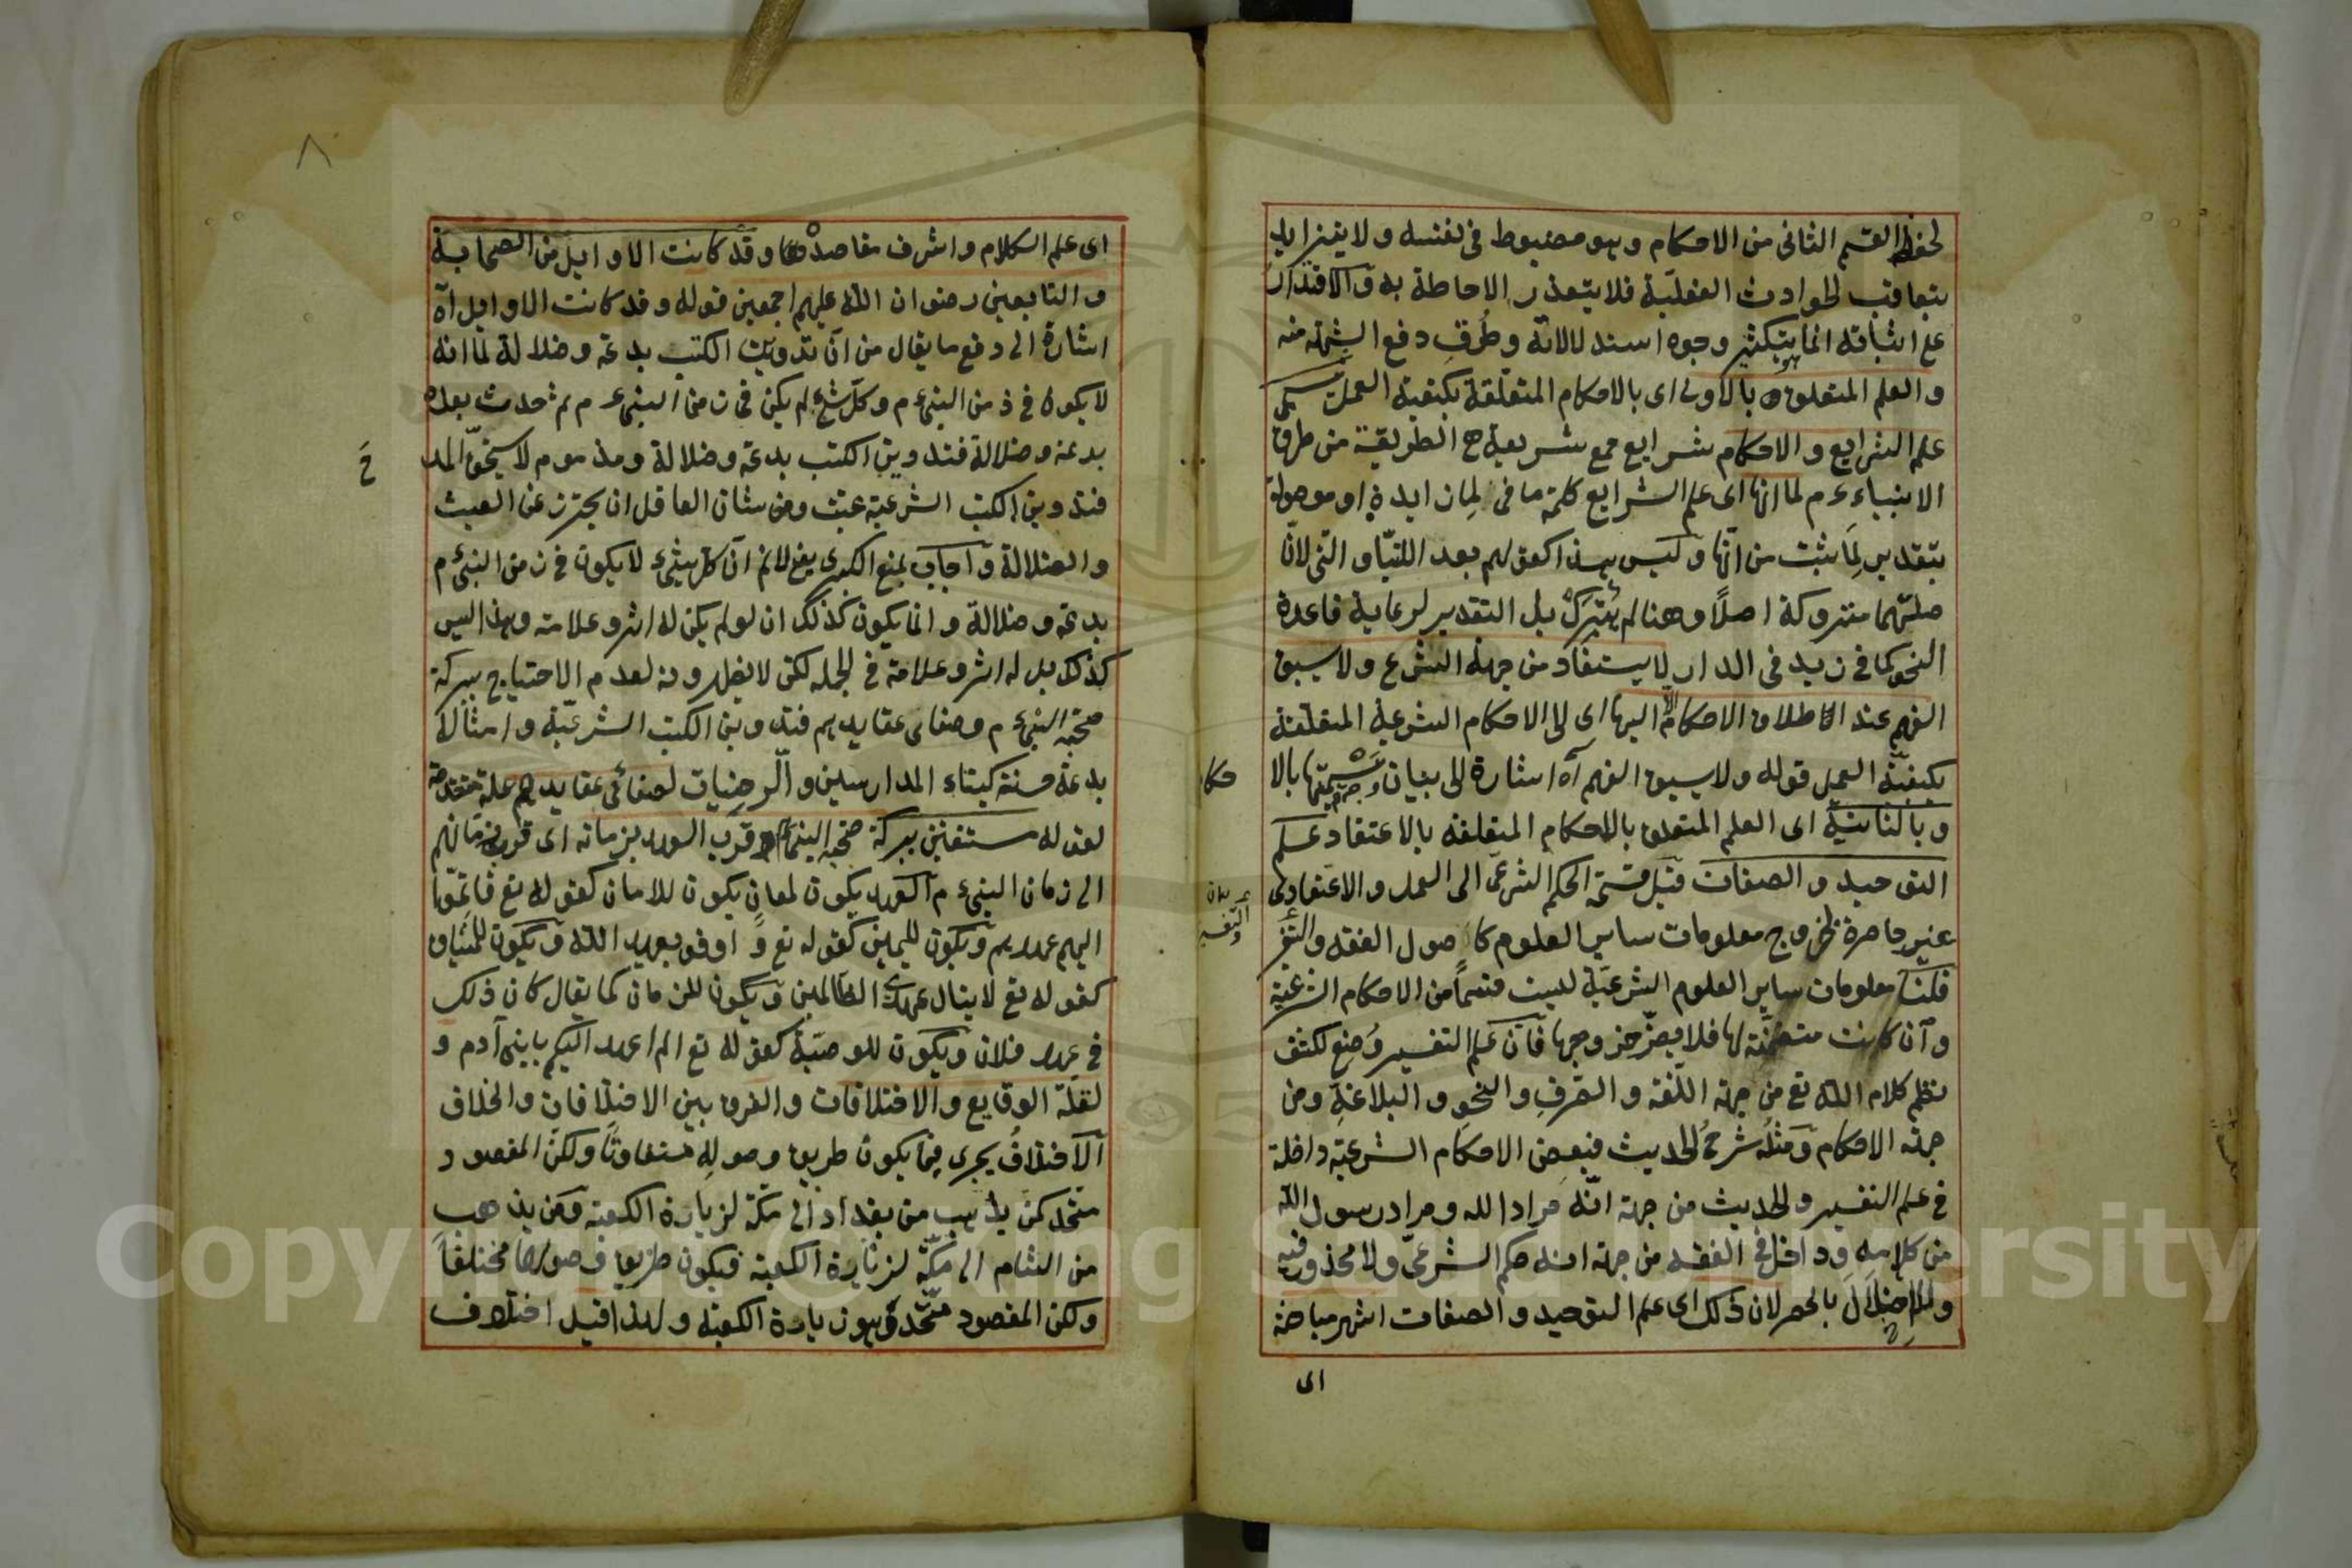 لحفظ القسم الثانى من الاحكام وهو مضبوط فى نفسه ولا يتزايد
بتعاقب الحوادث الفعلية فلا يتعذر الاحاطة به والاقتدار
على اثباته انما يتكثر وجوه استدلالاته وطرق دفع الشبهة منه
والعلم المتعلق بالاولى اى بالاحكام المتعلقة بكيفية العمل يسمى
علم الشرايع والاحكام شرايع جمع شريعة هى الطريقة من طرق
الانبياء ءم لما انها اى علم الشرايع كلمة ما فى لما زايدة او موصولة
بتقدير لما ثبت من انها وليس هذا كقولهم بعد اللتيا والتى لان
صلتهما متروكة اصلا وهنا لم يترك بل التقدير لرعاية قاعدة
النحو كما فى زيد فى الدار لا يستفاد من جهة الشرع ولا يسبق
الفهم عند اطلاق الاحكام الا اليها اى الى الاحكام الشرعية المتعلقة
بكيفية العمل قوله ولا يسبق الفهم آه اشارة الى بيان وجه تسميتها بالا
حكام
وبالثانية اى العلم المتعلق بالاحكام المتعلقة بالاعتقاد علم
التوحيد والصفات قيل قسمة الحكم الشرعى الى العمل والاعتقادى
غير حاصرة لخروج معلومات ساير العلوم كاصول الفقه والتفـ
قلنا معلومات ساير العلوم الشرعية ليست قسما من الاحكام الشرعية
وان كانت متضمنة لها فلا يضر خروجها فان علم التفسير وضع لكشف
نظم كلام الله تع من جهة اللغة والصرف والنحو والبلاغة ومن
جهة الاحكام ومثله شرح الحديث فبعض الاحكام الشرعية داخلة
فى علم التفسير والحديث من جهة انه مراد الله ومراد رسول الله
من كلامه وداخل فى الفقه من جهة انه حكم الشرعى ولا محذور فيه
بالحصر لان ذلك اى علم التوحيد والصفات اشهر مباحثه
اى
٨
اى علم الكلام واشرف مقاصده وقد كانت الاوايل من الصحابة
والتابعين رضوان الله عليهم اجمعين قوله وقد كانت الاوايل آه
اشارة الى دفع ما يقال من ان تدوين الكتب بدعة وضلالة لما انه
لا يكون فى زمن النبى ءم وكل شئ لم يكن فى زمن النبى ءم ثم حدث بعده
بدعة وضلالة فتدوين الكتب بدعة وضلالة ومذموم لا يستحق المد
ح
فتدوين الكتب الشرعية عبث ومن شان العاقل ان يحترز عن العبث
والضلالة واجاب بمنع الكبرى يعنى لانم ان كل شئ لا يكون فى زمن النبى ءم
بدعة وضلالة وانما يكون كذلك ان لو لم يكن له اثر وعلامة وهذا ليس
كذلك بل له اثر وعلامة فى الجملة لكن لا يظهرونه لعدم الاحتياج ببركة
صحبة النبى ءم وصفاى عقايدهم فتدوين الكتب الشرعية وامثاله
بدعة حسنة كبناء المدارسين والرضيات لصفائى عقايدهم علة متقدمة
لقوله مستغنين ببركة صحبة النبى ءم وقرب العهد بزمانه اى قرب زمانهم
الى زمان النبى ءم العهد يكون لمعان يكون للامان كقوله تع فاتموا
اليهم عهدهم ويكون لليمين كقوله تع واوفو بعهد الله ويكون للميثاق
كقوله تع لا ينال عهدى الظالمين ويكون للزمان كما يقال كان ذلك
فى عهد فلان ويكون للوصية كقوله تع الم اعهد اليكم يابنى آدم و
لقلة الوقايع والاختلافات والفرق بين الاختلافات والخلاف
الاختلاف يجرى فيما يكون طريق وصوله متفاوتا ولكن المقصود
متحد كمن يذهب من بغداد الى مكة لزيارة الكعبة ومن يذهب
من الشام الى مكة لزيارة الكعبة فيكون طريق وصولها مختلفا
ولكن المقصود متحد وهو زيارة الكعبة ولهذا قيل اختلاف
Copyright © King Saud University